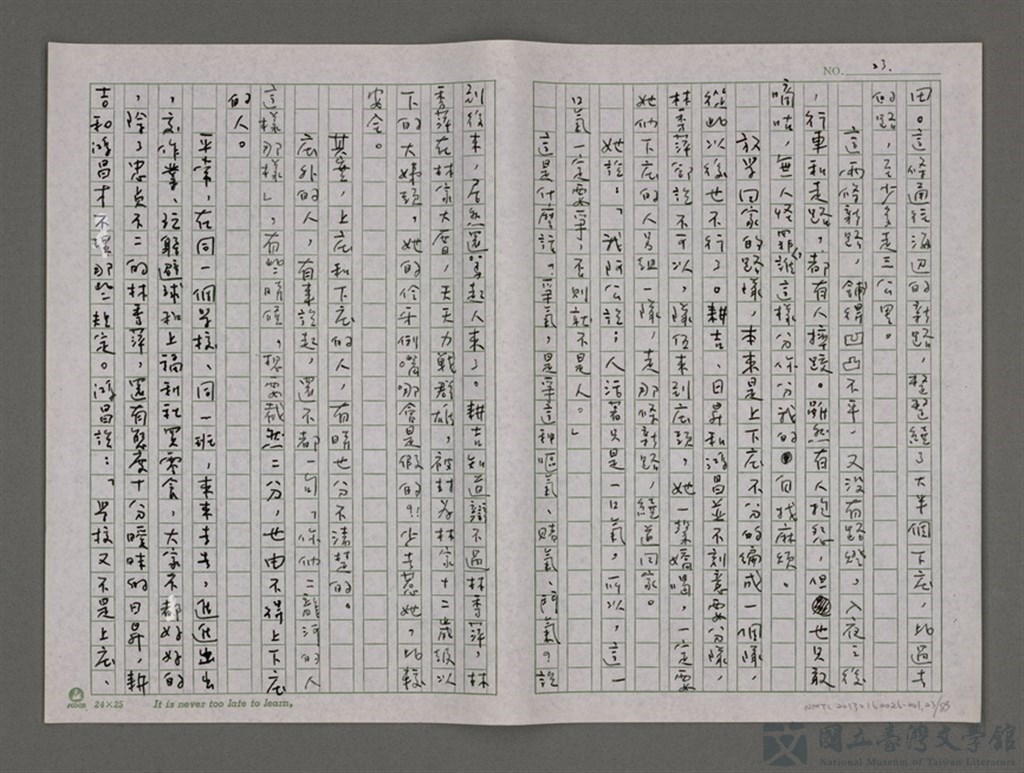 NO. 23.
田。這條通往海边的新路，整整繞了大半個下庄，比過去
的路，至少多走三公里。
這兩條新路，鋪得凹凸不平，又沒有路燈，入夜之後
，行車和走路，都有人摔跤。雖然有人抱怨，但也只敢
嘀咕，無人怪罪誰這樣分你分我的自找麻煩。
放學回家的路樣，本來是上下庄不分的編成一個隊，
從此以後也不行了。耕吉、日昇和鴻昌並不刻意要分隊，
林秀萍卻說不可以，隊伍來到庄頭，她一聲嬌喝，一定要
她們下庄的人另組一隊，走那條新路，繞道回家。
她說：「我阿公說；人活著只是一口氣，所以，這一
口氣一定要爭，不則就不是人。」
這是什麼話。爭氣，是爭這種嘔氣、賭氣、鬥氣？說
到後來，居然還罵起人來了。耕吉知道辯不過林秀萍，林
秀萍在林家大厝，天天力戰群雄，被封為林家十二歲級以
下的大姊頭，她的伶牙俐嘴哪會是假的！！少去惹她，比較
安全。
其實，上庄和下庄的人，有時也分不清楚的。
庄外的人，有事說起，還不都一句，你們二龍河的人
這樣那樣」，有些時候，想要截然二分，也由不得上下庄
的人。
平常，在同一個學校、同一班，來來去去，進進出出
，寫作業、玩躲避球和上福利社買零食，大家不都好好的
，除了忠貞不二的林秀萍，還有態度十分曖昧的日昇，耕
吉和鴻昌才不理那些規定。鴻昌說：「學校又不是上庄、
24×25 It is never too late to learn,
NMTL20130160026-001,23/85
國立臺灣文學館
National Museum of Taiwan Literature